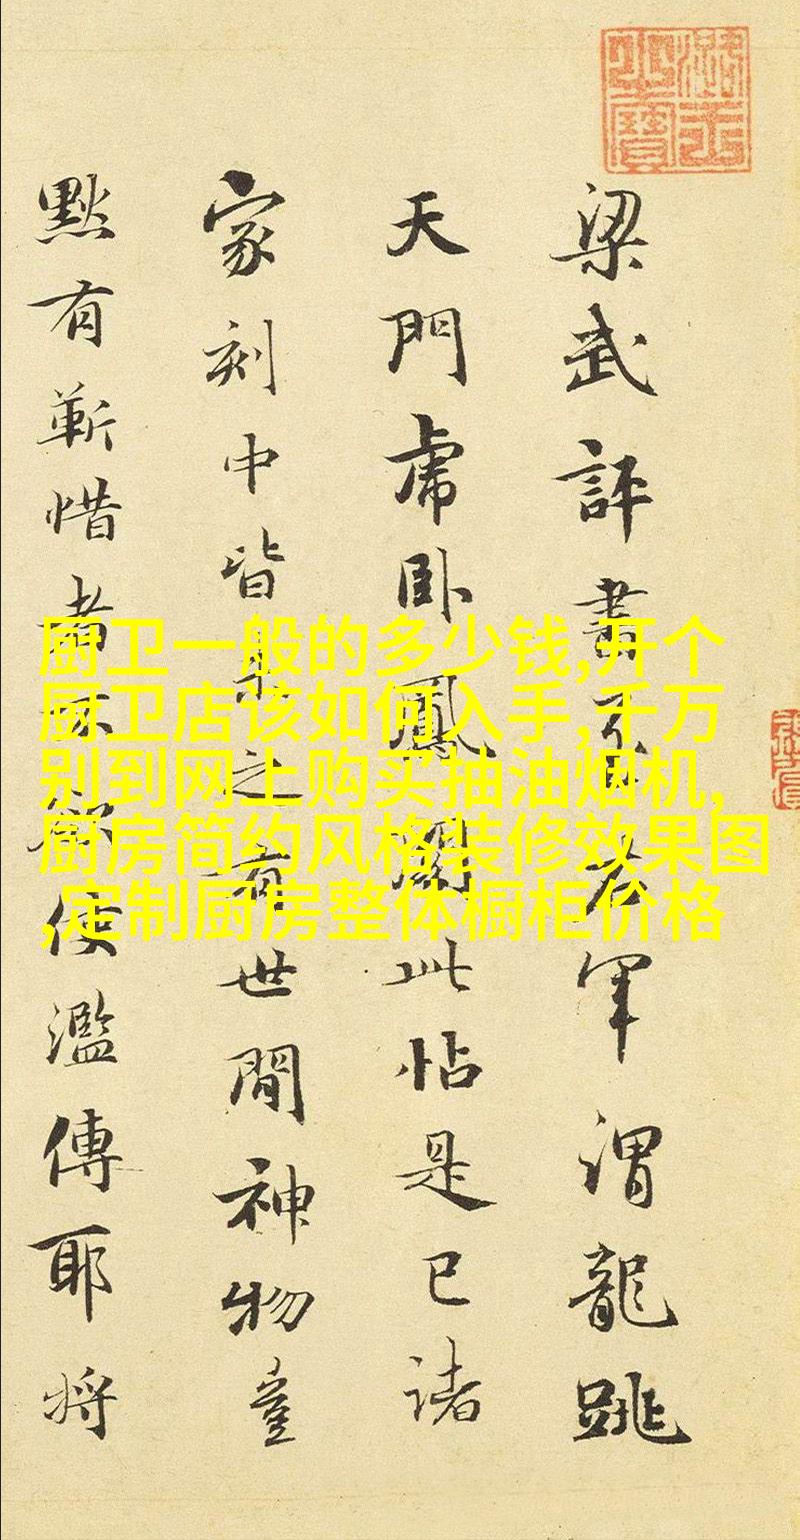 梁武評書至右軍謂龍跳
天門虎卧鳳閣此帖是已諸
家刻中皆未之有世間神物豈
默有靳惜者不欲使濫傳耶將
厨卫一般的多少钱,开个
厨卫店该如何入手,千万
别到网上购买抽油烟机,
厨房简约风格装修效果图
,定制厨房整体橱柜价格